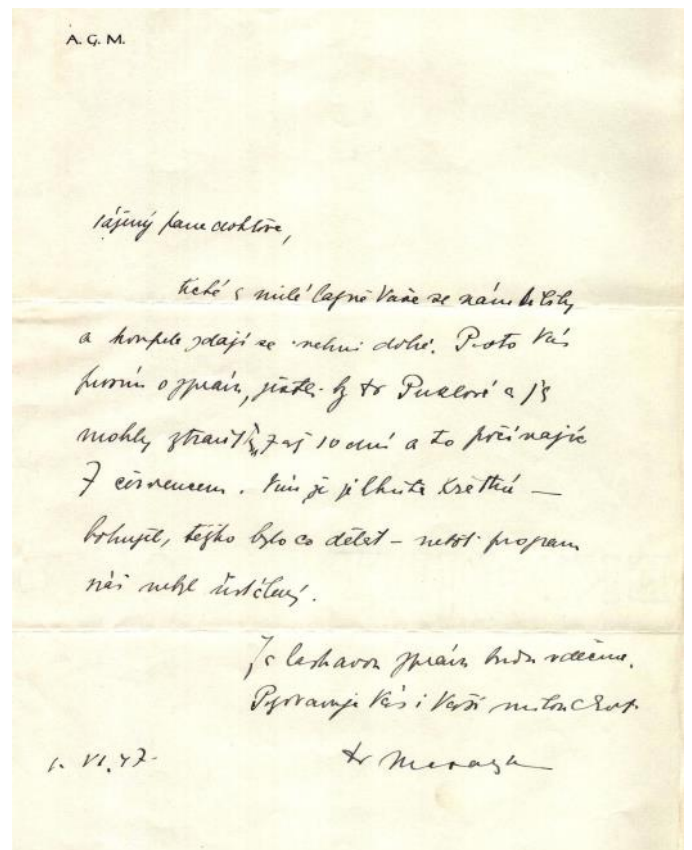 A. G. M.
Vážený pane doktore,
tiché a milé lázně Vaše se nám líbily
a koupele zdají se nám dobré. Proto Vás
prosím o zprávu, by dr a já
mohly ztrávit 7 až 10 dní a to počínajíc
7 červencem. Vím že je lhůta krátká —
bohužel, těžko bylo co dělat – neboť program
náš nebyl ustálený.
Za laskavou zprávu budu vděčna.
Pozdravuje Vás i Vaši milou
1. VI. 47.
dr Masaryk